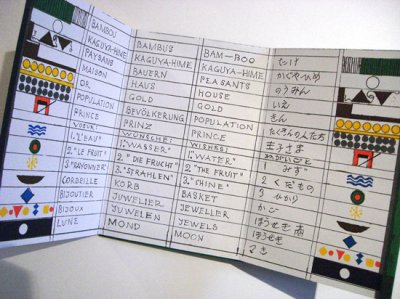 BAMBOU
KAGUYA-HIME
PAYSANS
MAISON
OR
POPULATION
PRINCE
VOEUX:
1. "L'EAU"
2. "LE FRUIT"
3. "RAYONNER"
CORBEILLE
BIJOUTIER
BIJOUX
LUNE
BAMBUS
KAGUYA-HIME
BAUERN
HAUS
GOLD
BEVÖLKERUNG
PRINZ
WÜNSCHE:
1. "WASSER"
2. "DIE FRUCHT"
3. "STRAHLEN"
KORB
JUWELIER
JUWELEN
MOND
BAM-BOO
KAGUYA-HIME
PEASANTS
HOUSE
GOLD
POPULATION
PRINCE
WISHES:
1. "WATER"
2. "THE FRUIT"
3. "SHINE"
BASKET
JEWELLER
JEWELS
MOON
たけ
かぐや・ひめ
のうみん
いえ
きん
王子さま
ねがいごと
みず
2 くだもの
3 ひかり
かご
ほうせき商
ほうせき